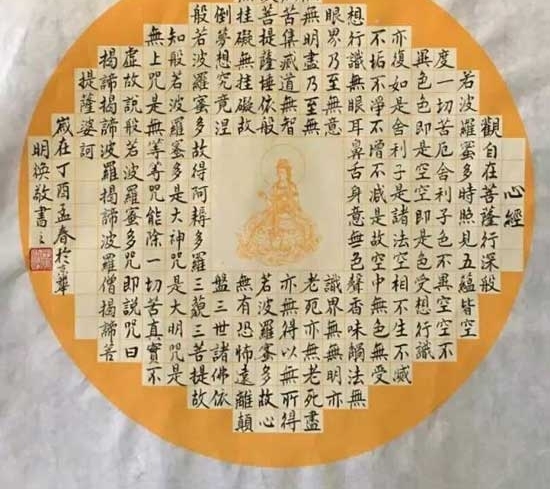 心經
觀自在菩薩行深般
若波羅蜜多時照見五蘊皆空
度一切苦厄舍利子色不異空空不
異色色即是空空即是色受想行識
亦復如是舍利子是諸法空相不生不滅
不垢不淨不增不減是故空中無色無受
想行識無眼耳鼻舌身意無色聲香味觸法無
眼界乃至無意識界無無明亦
無明盡乃至無老死亦無老死盡
苦集滅道無智亦無得以無所得
菩提薩埵依般若波羅蜜多故心
挂礙無挂礙故無有恐怖遠離顛
倒夢想究竟涅盤三世諸佛依
般若波羅蜜多故得阿耨多羅三藐三菩提故
知般若波羅蜜多是大神咒是大明咒是
無上咒是無等等咒能除一切苦真實不
虛故說般若波羅蜜多咒即說咒曰
揭諦揭諦波羅揭諦波羅僧揭諦菩
提薩婆訶
歲在丁酉孟春於京華
明煥敬書